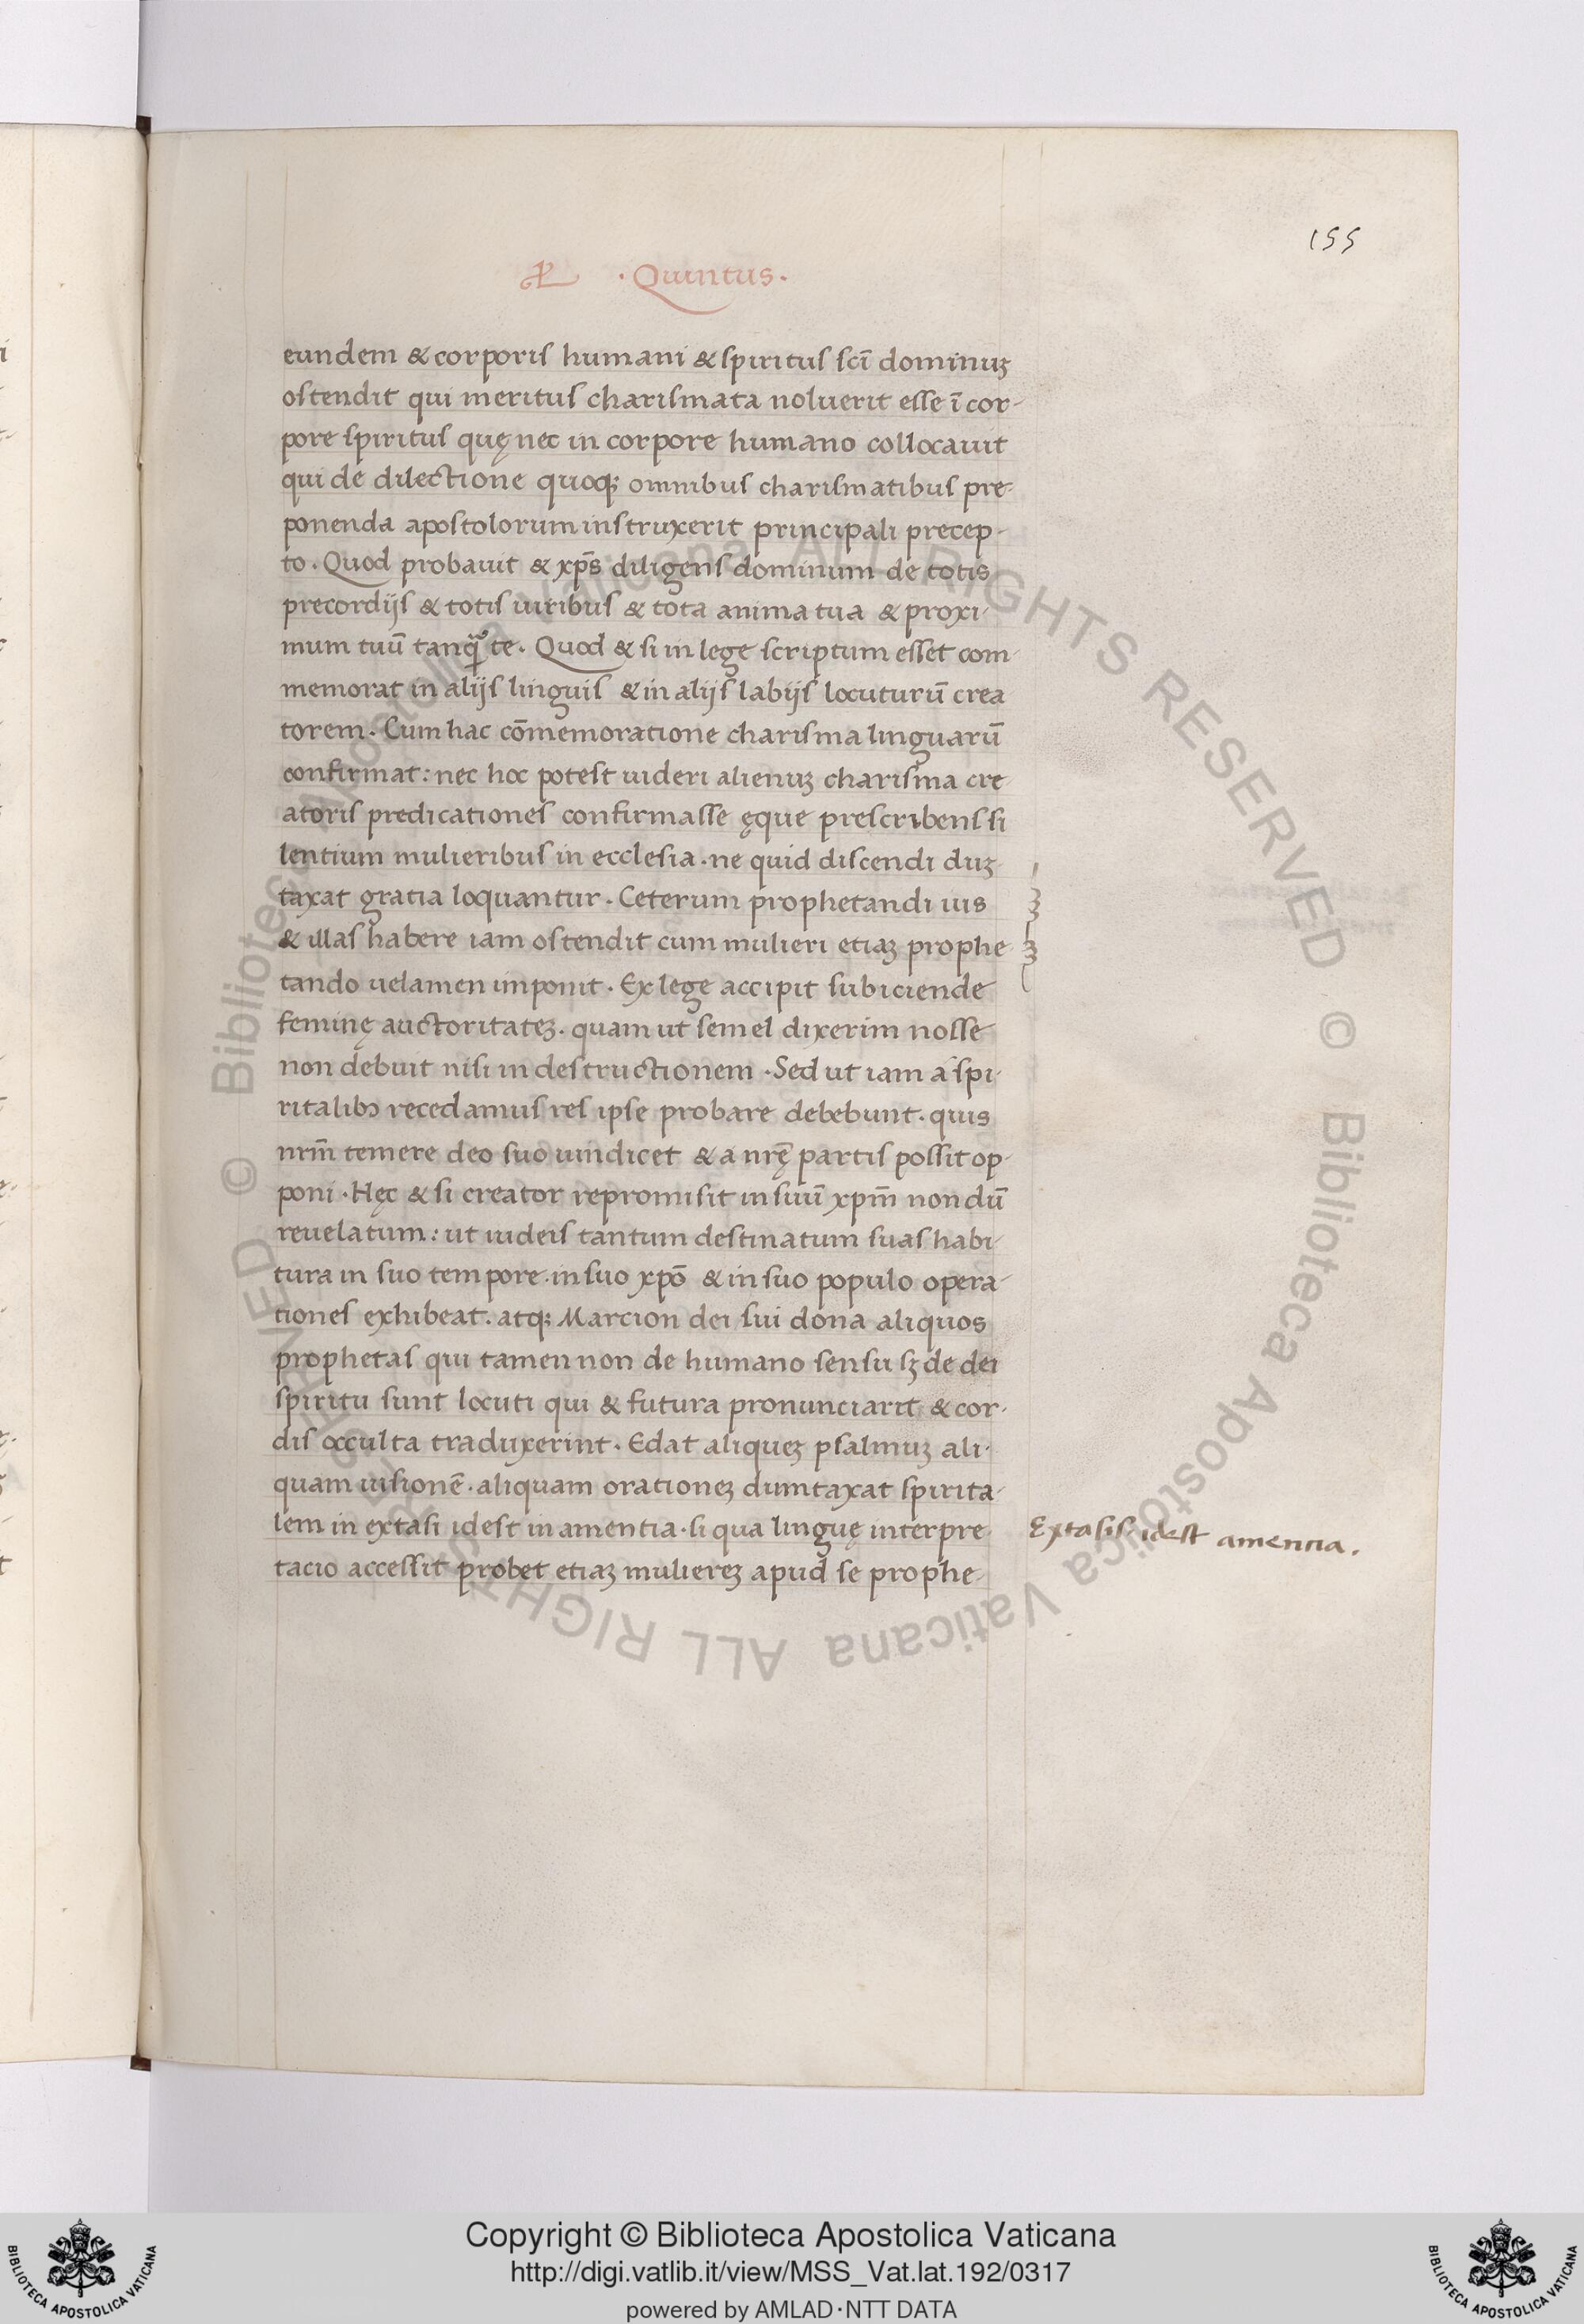 155
·Quintus·
eundem & corporis humani & spiritus sc̄i dominuʒ
ostendit qui meritus charismata noluerit esse ī cor-
pore spiritus quę nec in corpore humano collocauit
qui de dilectione quoqꝫ omnibus charismatibus pre-
ponenda apostolorum instruxerit principali precep-
to. Quod probauit & xp̄s diligens dominum de totis
precordijs & totis uiribus & tota anima tua & proxi-
mum tuū tanq̃ te. Quod & si in lege scriptum esset com-
memorat in alijs linguis & in alijs labijs locuturū crea
torem. Cum hac cōmemoratione charisma linguarū
confirmat: nec hoc potest uideri alienuʒ charisma cre
atoris predicationes confirmasse ęque prescribens si
lentium mulieribus in ecclesia. ne quid discendi duʒ
taxat gratia loquantur. Ceterum prophetandi uis
& illas habere iam ostendit cum mulieri etiaʒ prophe
tando uelamen imponit. Ex lege accipit subiciende
feminę auctoritateʒ. quam ut semel dixerim nosse
non debuit nisi in destructionem. Sed ut iam a spi-
ritalibꝫ recedamus res ipse probare debebunt. quis
nr̄m temere deo suo uindicet & a nr̄ę partis possit op-
poni. Hęc & si creator repromisit in suū xp̄m nondū
reuelatum: ut iudeis tantum destinatum suas habi-
tura in suo tempore. in suo xp̄o & in suo populo opera-
tiones exhibeat. atqꝫ Marcion dei sui dona aliquos
prophetas qui tamen non de humano sensu sʒ de dei
spiritu sunt locuti qui & futura pronunciarit & cor-
dis occulta traduxerint. Edat aliqueʒ psalmuʒ ali-
quam uisionē. aliquam orationeʒ dumtaxat spirita-
lem in extasi idest in amentia. si qua linguę interpre-
tacio accessit probet etiaʒ muliereʒ apud se prophe-
Extasis. idest amentia.
© Biblioteca Apostolica Vaticana ALL RIGHTS RESERVED
© Biblioteca Apostolica Vaticana ALL RIGHTS RESERVED
Copyright © Biblioteca Apostolica Vaticana
http://digi.vatlib.it/view/MSS_Vat.lat.192/0317
powered by AMLAD·NTT DATA
BIBLIOTECA APOSTOLICA VATICANA
BIBLIOTECA APOSTOLICA VATICANA